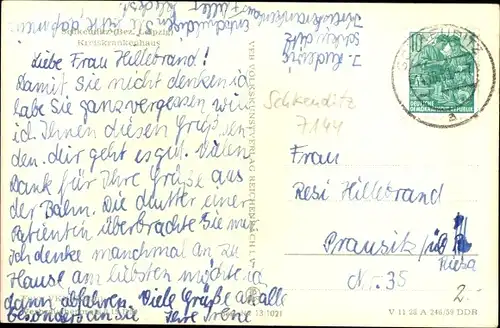 Schkeuditz (Bez. Leipzig)
Kreiskrankenhaus
Liebe Frau Hillebrand!
Damit Sie nicht denken ich
habe Sie ganz vergessen will
ich Ihnen diesen Gruß sen-
den. Mir geht es gut. Vielen
Dank für Ihre Grüße aus
der Bahn. Die Mutter einer
Patientin überbrachte Sie mir
Ich denke manchmal an zu
Hause am liebsten möchte ich
dann abfahren. Viele Grüße an alle
besonders an Sie Ihre Irene
Entschuldigen Sie bitte
Schkeuditz
SCHKEUDITZ
10
DEUTSCHE
DEMOKRATISCHE
REPUBLIK
a
Schkeuditz
7144
Frau
Resi Hillebrand
Prausitz / üb
Riesa
Nr. 35
2.-
V 11 28 A 246/59 DDR
13/1021